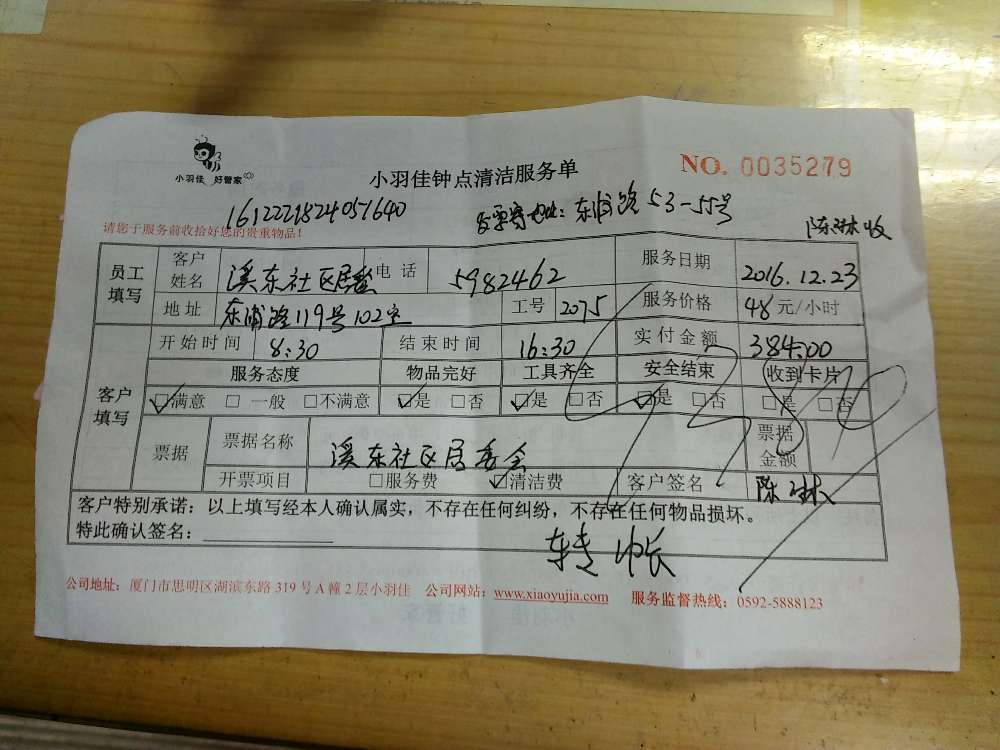 小羽佳 好管家
小羽佳钟点清洁服务单
NO. 0035279
1612221824051640
发票寄地址：东浦路53-55号
陈琳收
请您于服务前收拾好您的贵重物品！
员工填写 客户姓名 溪东社区居委 电话 5982462 服务日期 2016.12.23
地址 东浦路119号102室 工号 2075 服务价格 48元/小时
开始时间 8:30 结束时间 16:30 实付金额 384.00
客户填写 服务态度 物品完好 工具齐全 安全结束 收到卡片
☑满意 □一般 □不满意 ☑是 □否 ☑是 □否 ☑是 □否 □是 □否
票据 票据名称 溪东社区居委会 票据金额
开票项目 □服务费 ☑清洁费 客户签名 陈琳
客户特别承诺：以上填写经本人确认属实，不存在任何纠纷，不存在任何物品损坏。
特此确认签名：
公司地址：厦门市思明区湖滨东路319号A幢2层小羽佳 公司网站：www.xiaoyujia.com 服务监督热线：0592-5888123